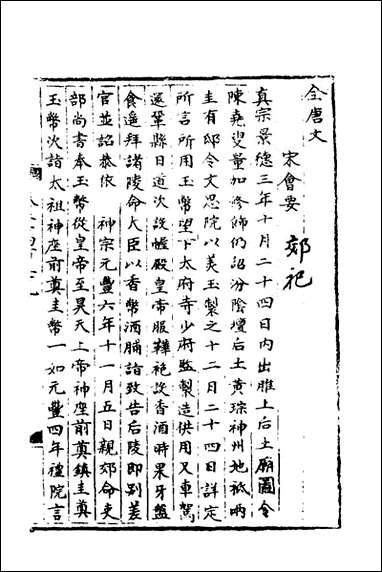 全唐文
宋會要 郊祀
真宗景德三年十月二十四日内出脽上后土廟圖令
陳堯叟量加修飾仍詔汾陰壇后土黄琮神州地祇兩
圭有邸令文思院以美玉製之十二日二十四日詳定
所言所用玉幣望下太府寺少府監製造供用又車駕
還鞏縣日道次設帳殿皇帝服鞾袍設香酒時果牙盤
食遥拜諸陵命大臣以香幣酒脯詣致告后陵即别差
官並詔恭依 神宗元豐六年十一月五日親郊命吏
部尚書奉玉幣從皇帝至昊天上帝神座前奠鎮圭奠
玉幣次詣太祖神座前奠圭幣一如元豐四年禮院言